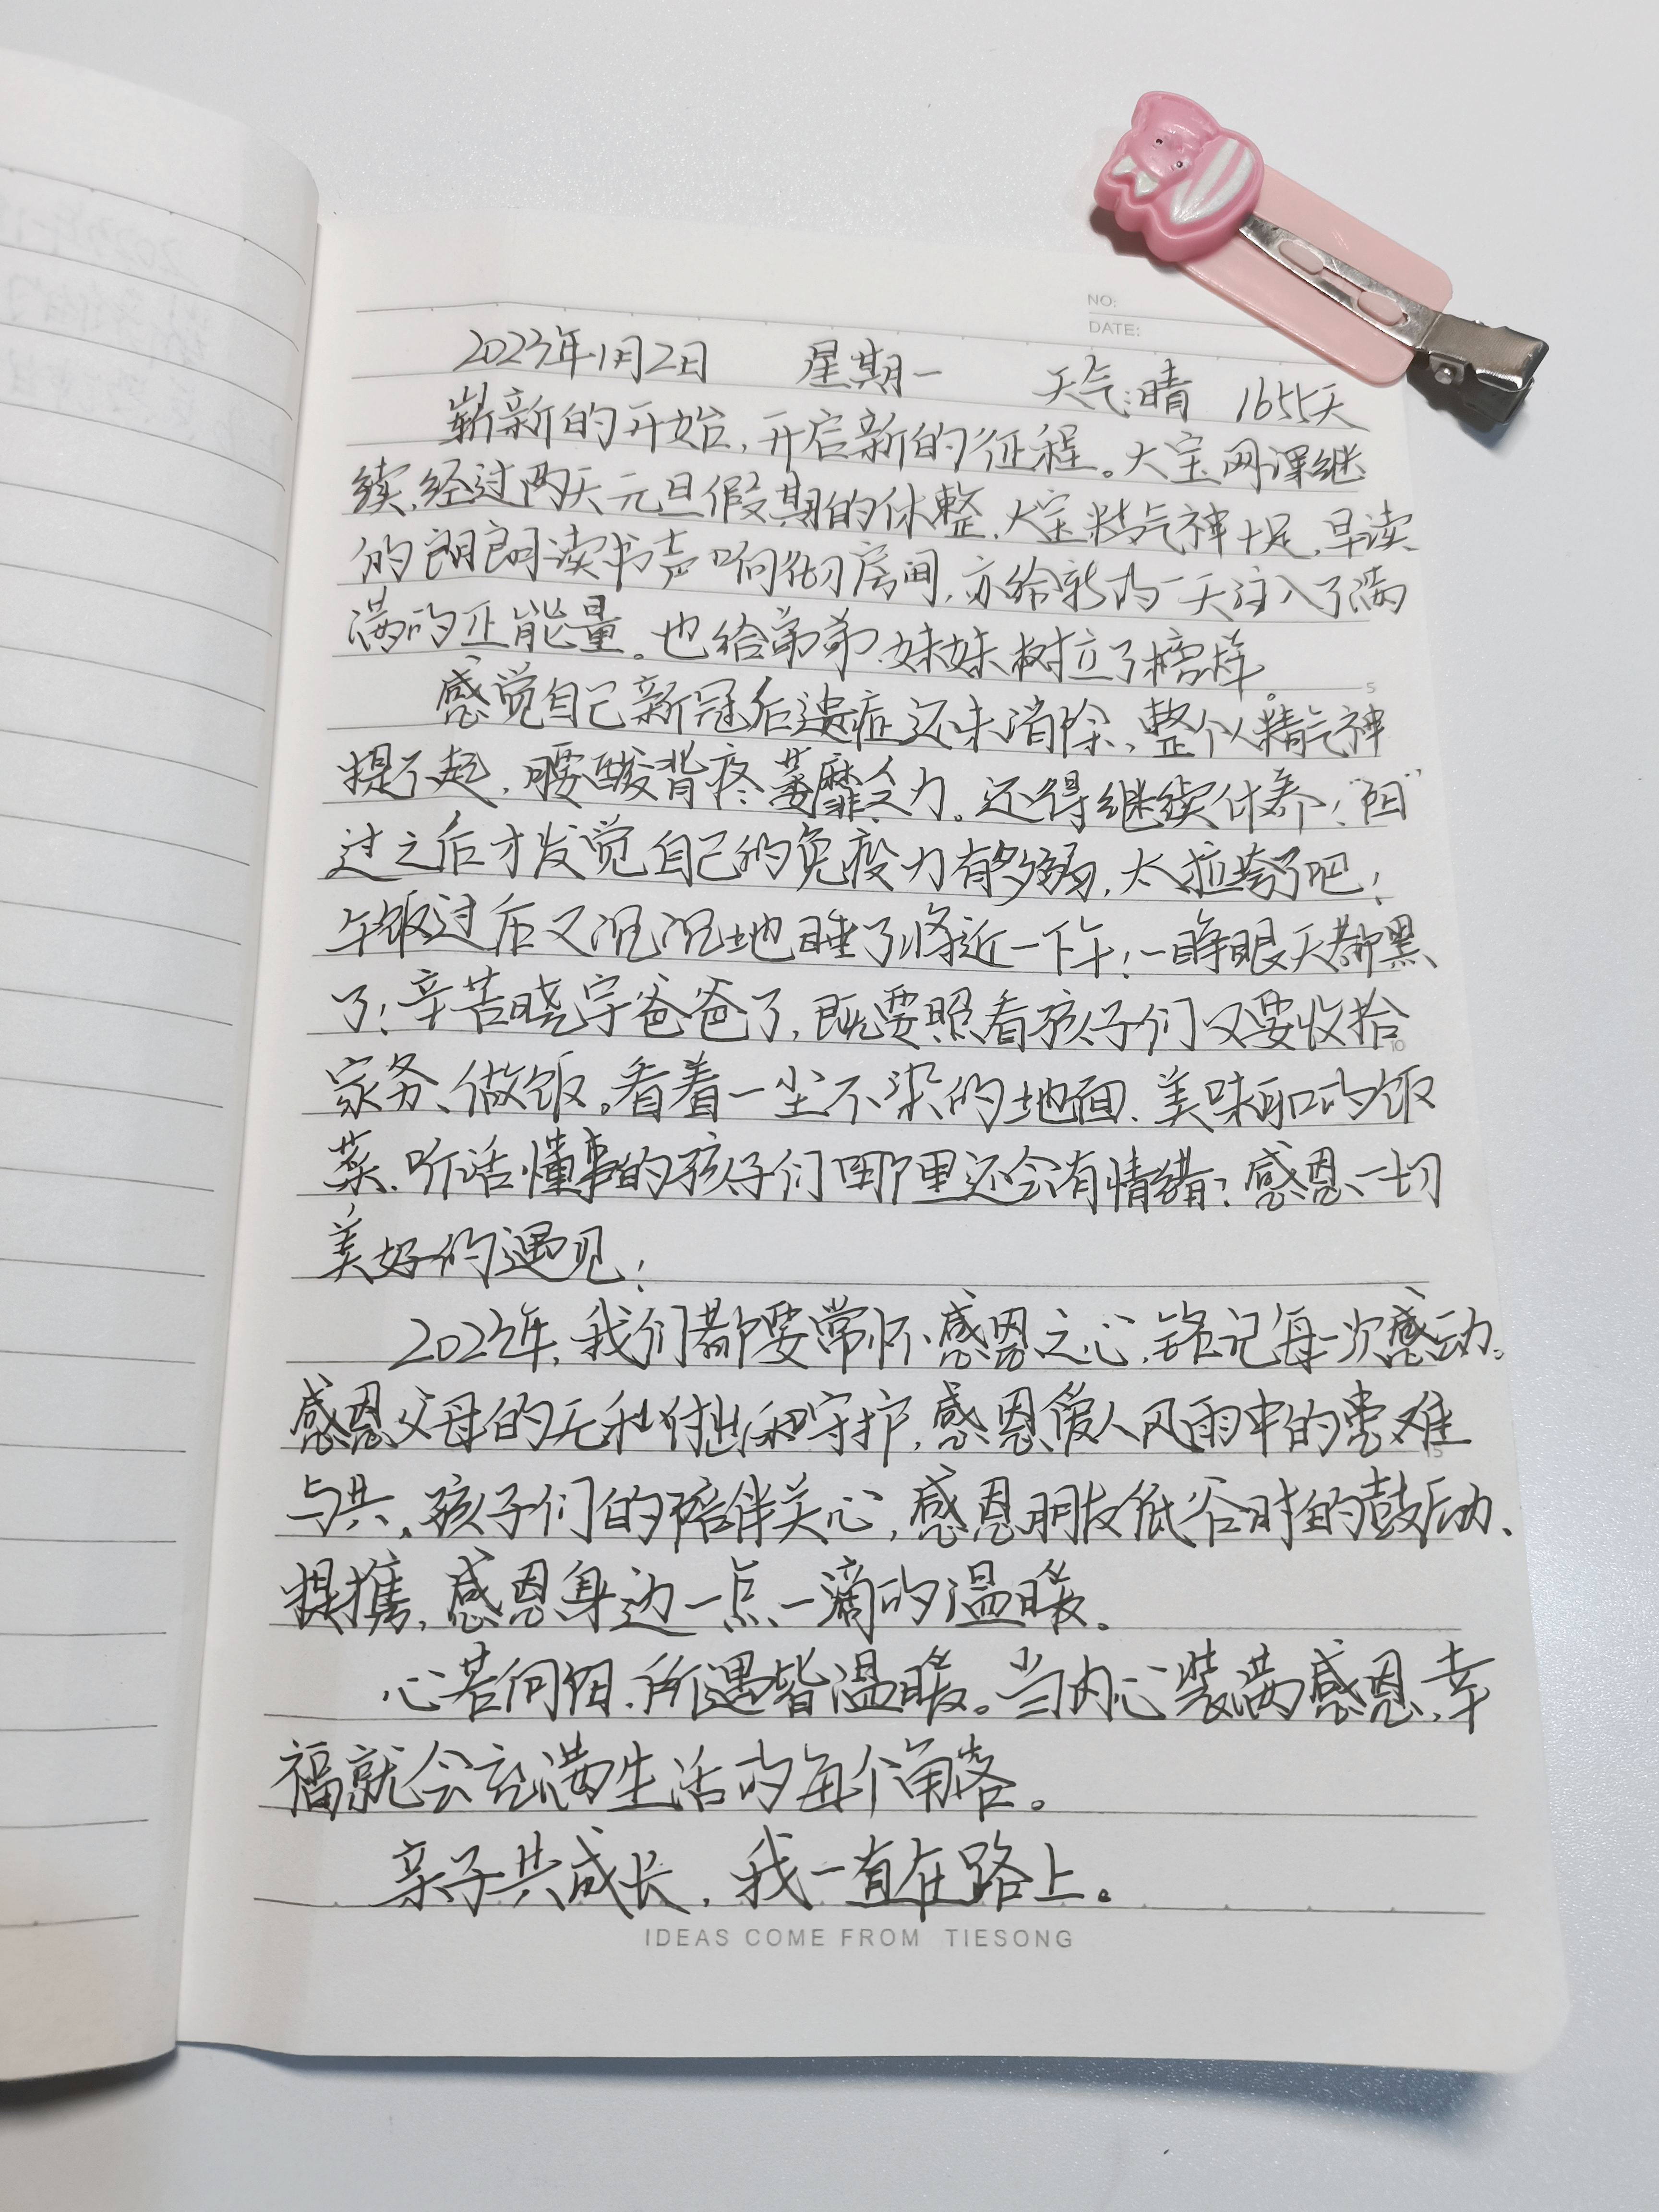 NO:
DATE:
2023年1月2日 星期一 天气:晴 1655天
崭新的开始,开启新的征程。大宝网课继
续,经过两天元旦假期的休整,大宝精气神十足,早读
的朗朗读书声响彻房间,亦给新的一天注入了满
满的正能量。也给弟弟、妹妹树立了榜样。
5
感觉自己新冠后遗症还未消除,整个人精气神
提不起,腰酸背疼、萎靡乏力。还得继续休养!“阳”
过之后才发觉自己的免疫力有多弱,太拉垮了吧!
午饭过后又沉沉地睡了将近一下午!一睁眼天都黑
了!辛苦晓宇爸爸了,既要照看孩子们又要收拾
10
家务、做饭。看着一尘不染的地面、美味可口的饭
菜、听话懂事的孩子们哪里还会有情绪?感恩一切
美好的遇见!
2023年,我们都要常怀感恩之心,铭记每一次感动。
感恩父母的无私付出和守护,感恩爱人风雨中的患难
15
与共、孩子们的陪伴关心,感恩朋友低谷时的鼓励、
提携,感恩身边一点一滴的温暖。
心若向阳,所遇皆温暖。当内心装满感恩,幸
福就会充满生活的每个角落。
亲子共成长,我一直在路上。
IDEAS COME FROM TIESONG